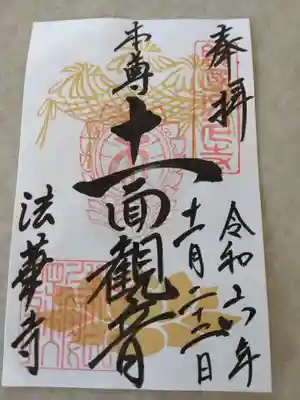 奉拝
令和六年
十一月二十三日
本尊
十一面観音
法華寺